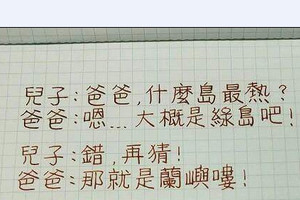 兒子:爸爸,什麼島最熱?
爸爸:嗯...大概是綠島吧!
兒子:錯,再猜!
爸爸:那就是蘭嶼嘍!